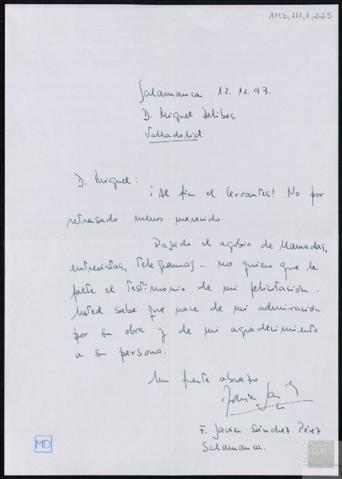 AMD, 111, 1, 225
Salamanca 12.12.93.
D. Miguel Delibes.
Valladolid.
D. Miguel:
¡Al fin el Cervantes! No por
retrasado menos merecido.
Pasado el agobio de llamadas,
entrevistas, telegramas... no quiero que le
falte el testimonio de mi felicitación.
Usted sabe que nace de mi admiración
por su obra y de mi agradecimiento
a su persona.
Un fuerte abrazo
F. Javier Sánchez Pérez
Salamanca.
MD